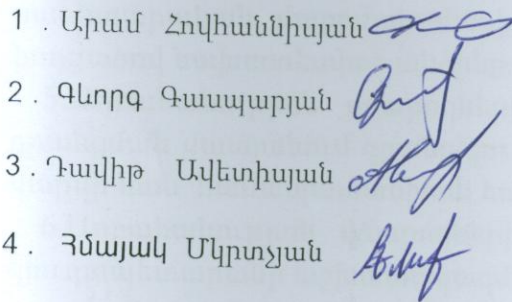 1 . Արամ Հովհաննիսյան
2 . Գևորգ Գասպարյան
3 . Դավիթ Ավետիսյան
4 . Հմայակ Մկրտչյան